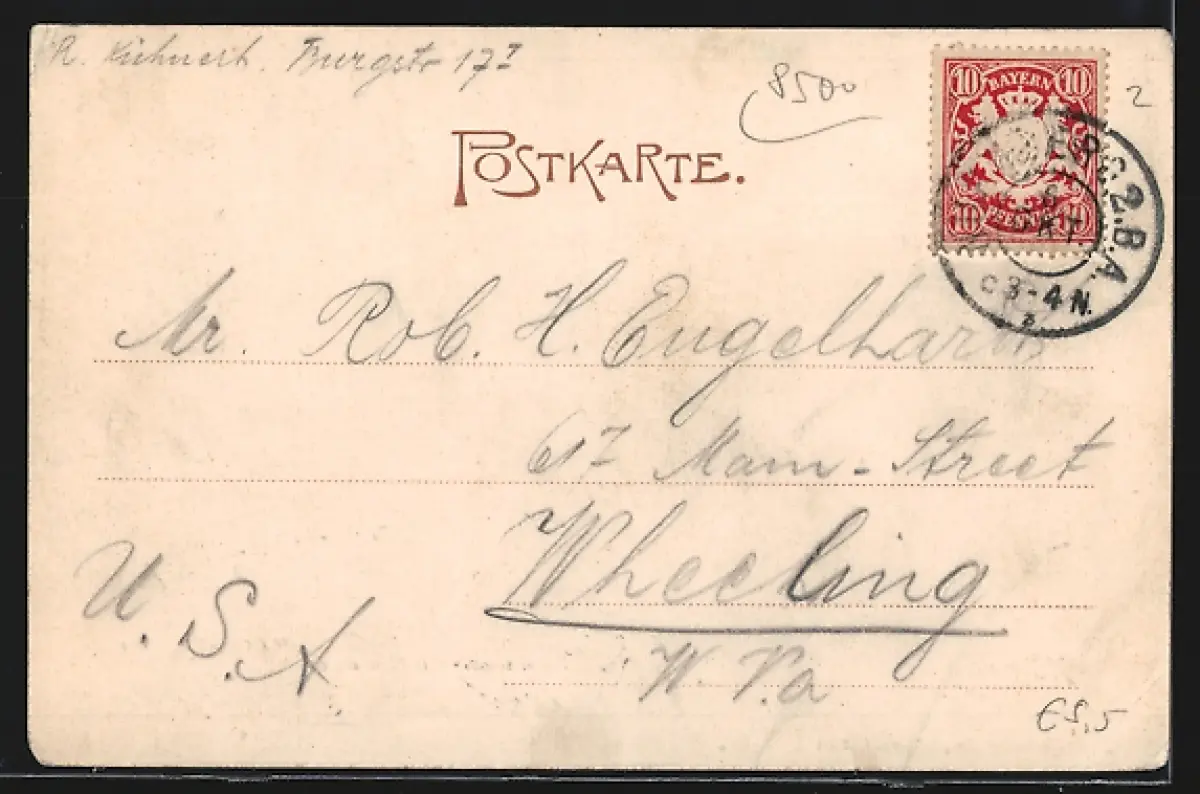 R. Kühnert. Burgstr 17 I
8500
2
10 BAYERN 10
10 PFENNIG 10
POSTKARTE.
2.B.A.
3-4 N.
Mr. Rob. H. Engelhardt
617 Main-Street
Wheeling
U.S.A
W. Va
€8,5